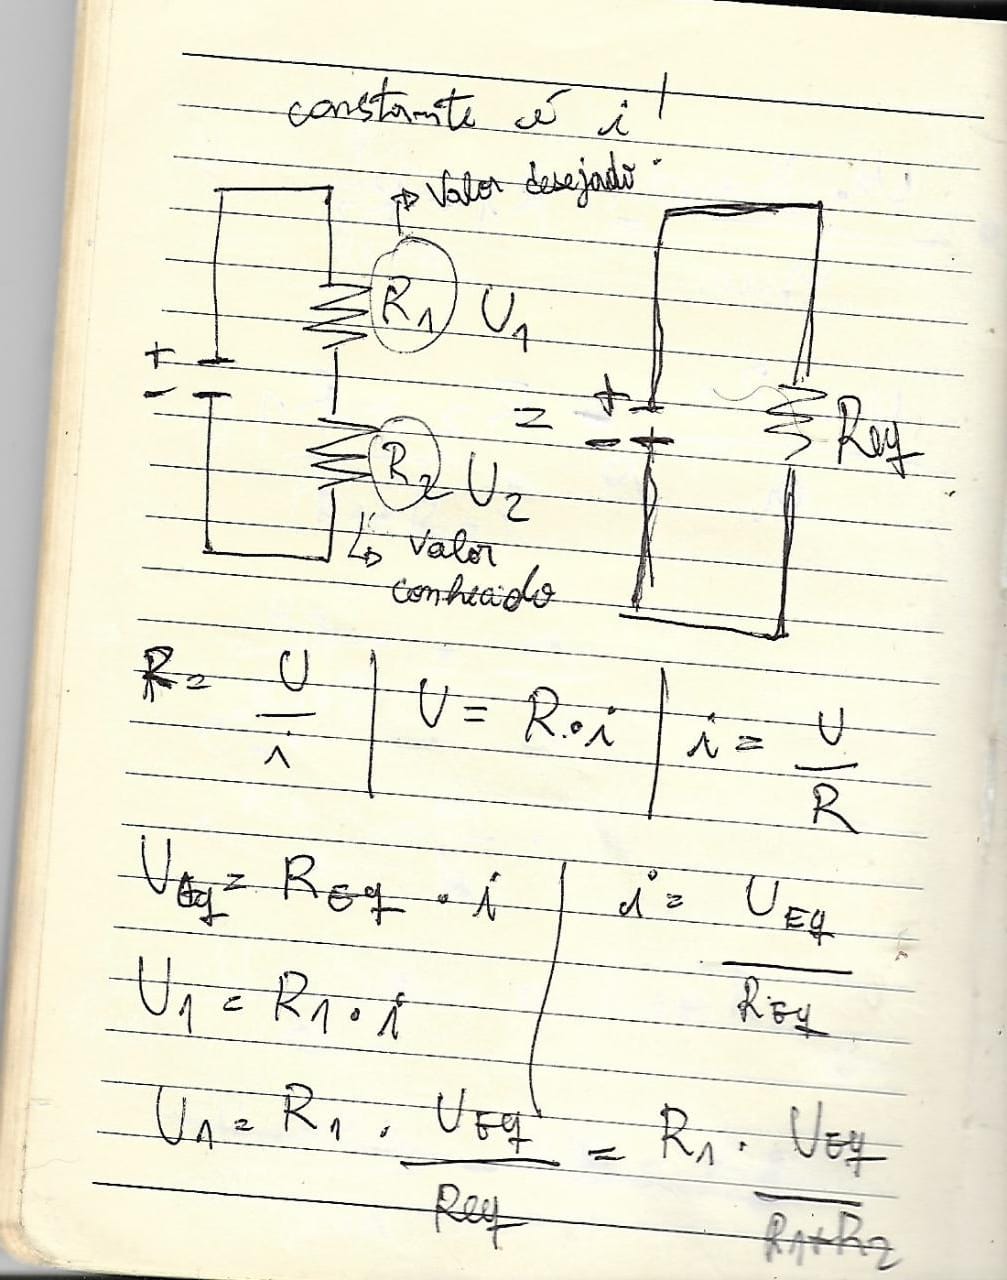 constante é i
Valor desejado
R1 U1
+
-
R2 U2
=
+
-
Req
Valor
conhecido
R = U/i | U = R.i | i = U/R
Ueq = REq . i | i = UEq/REq
U1 = R1 . i
U1 = R1 . UEq/Req = R1 . UEq/R1+R2